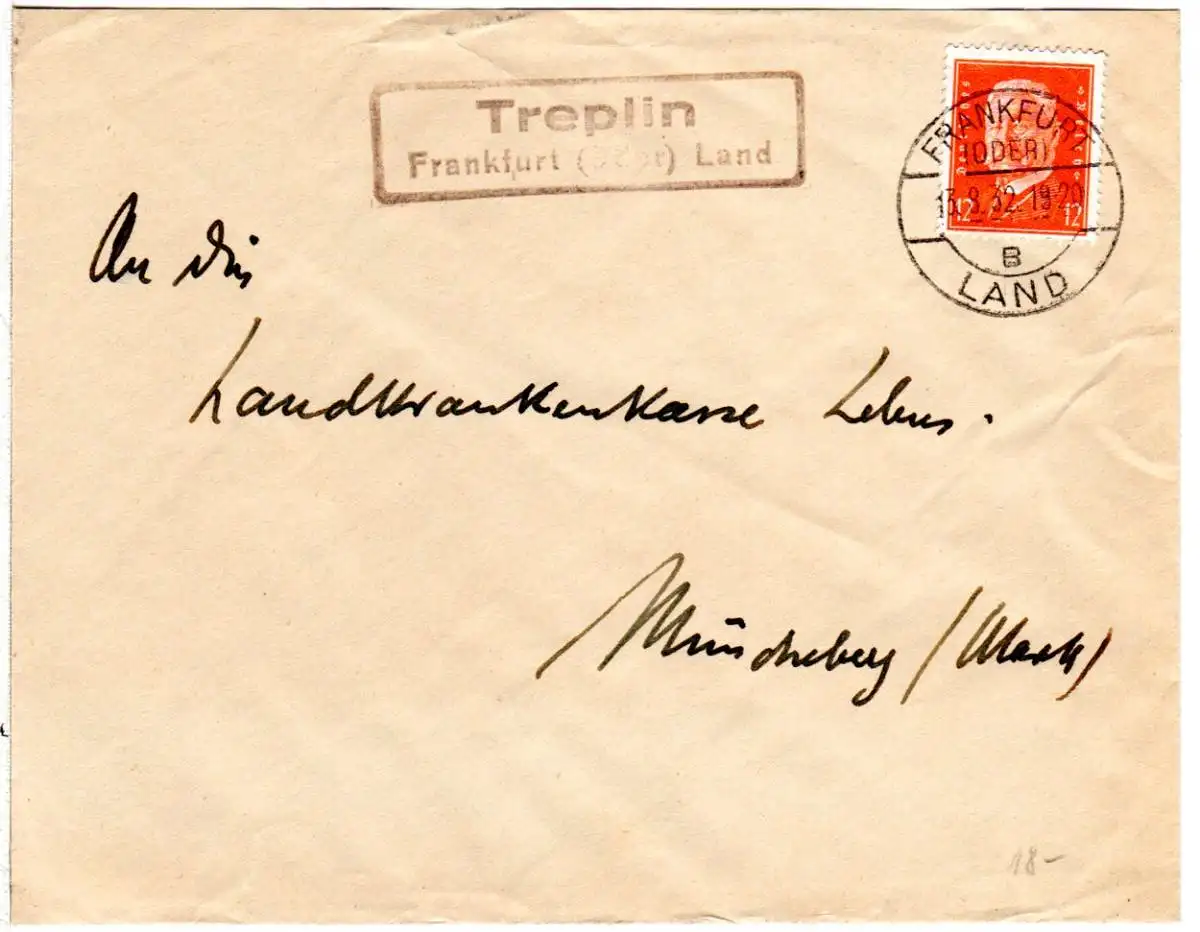 Treplin
Frankfurt (Oder) Land
Deutsches Reich
12 12
FRANKFURT
(ODER)
13.8.32. 19-20
B
LAND
An die
Landkrankenkasse Lebus.
Müncheberg (Mark)
18-